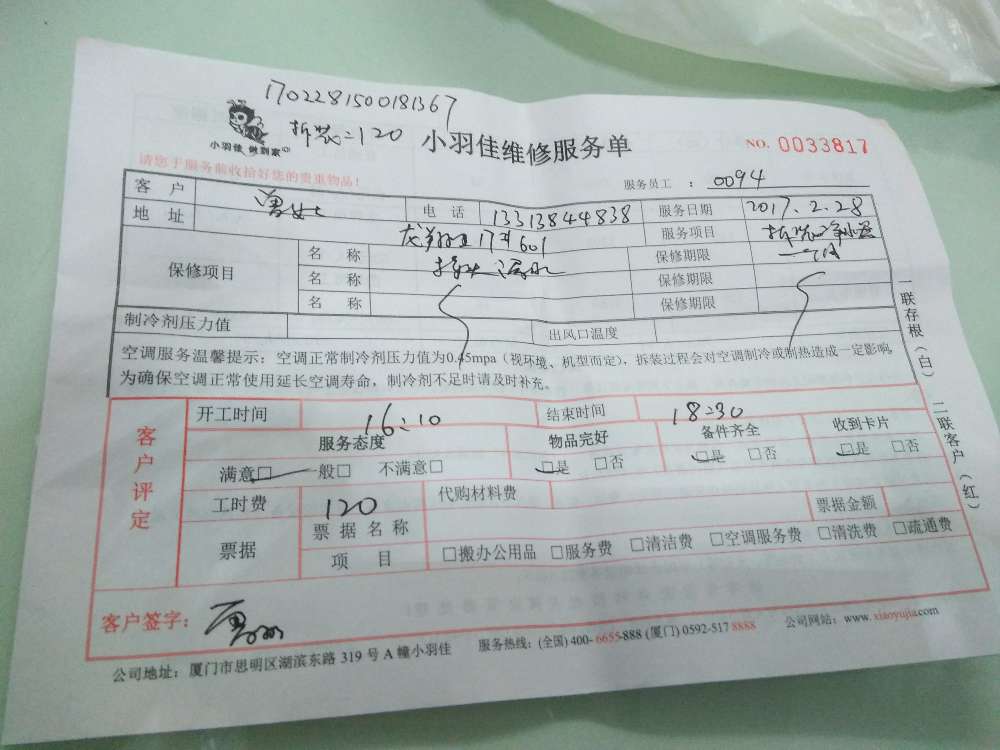 1702281500181367
拆装=120
小羽佳 做到家
小羽佳维修服务单
NO. 0033817
请您于服务前收拾好您的贵重物品!
服务员工 : 0094
客 户 女士 电 话 13313844838 服务日期 2017.2.28
地 址 17#601 服务项目 拆装
保修项目 名 称 漏水 保修期限 一个月
名 称 保修期限
名 称 保修期限
制冷剂压力值 出风口温度
空调服务温馨提示:空调正常制冷剂压力值为0.45mpa(视环境、机型而定),拆装过程会对空调制冷或制热造成一定影响,
为确保空调正常使用延长空调寿命,制冷剂不足时请及时补充。
一联存根(白) 二联客户(红)
客户评定
开工时间 16:10 结束时间 18:30
服务态度 物品完好 备件齐全 收到卡片
满意□ 一般□ 不满意□ □是 □否 □是 □否 □是 □否
工时费 120 代购材料费
票据 票据名称 票据金额
项 目 □搬办公用品 □服务费 □清洁费 □空调服务费 □清洗费 □疏通费
客户签字:
公司地址:厦门市思明区湖滨东路 319 号 A 幢小羽佳 服务热线:(全国) 400-6655-888 (厦门) 0592-517 8888 公司网站:www.xiaoyujia.com